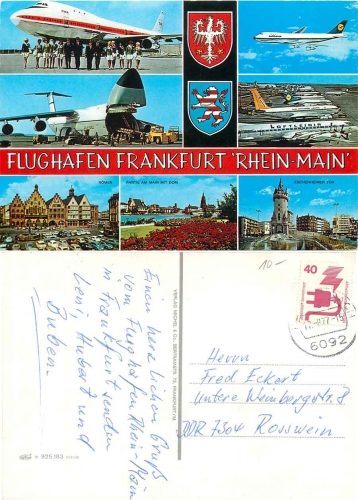 FLUGHAFEN FRANKFURT 'RHEIN-MAIN'
RÖMER
PARTIE AM MAIN MIT DOM
ESCHENHEIMER TOR
Einen herzlichen Gruß
vom Flughafen Rhein-Main
in Frankfurt senden
Lieni, Hubert und
Buben
VERLAG MICHEL & Co., FRANKFURT/M.
10-
40
6092
Herrn
Fred Eckert
Untere Weinbergstr. 8
DDR 7304 Rosswein